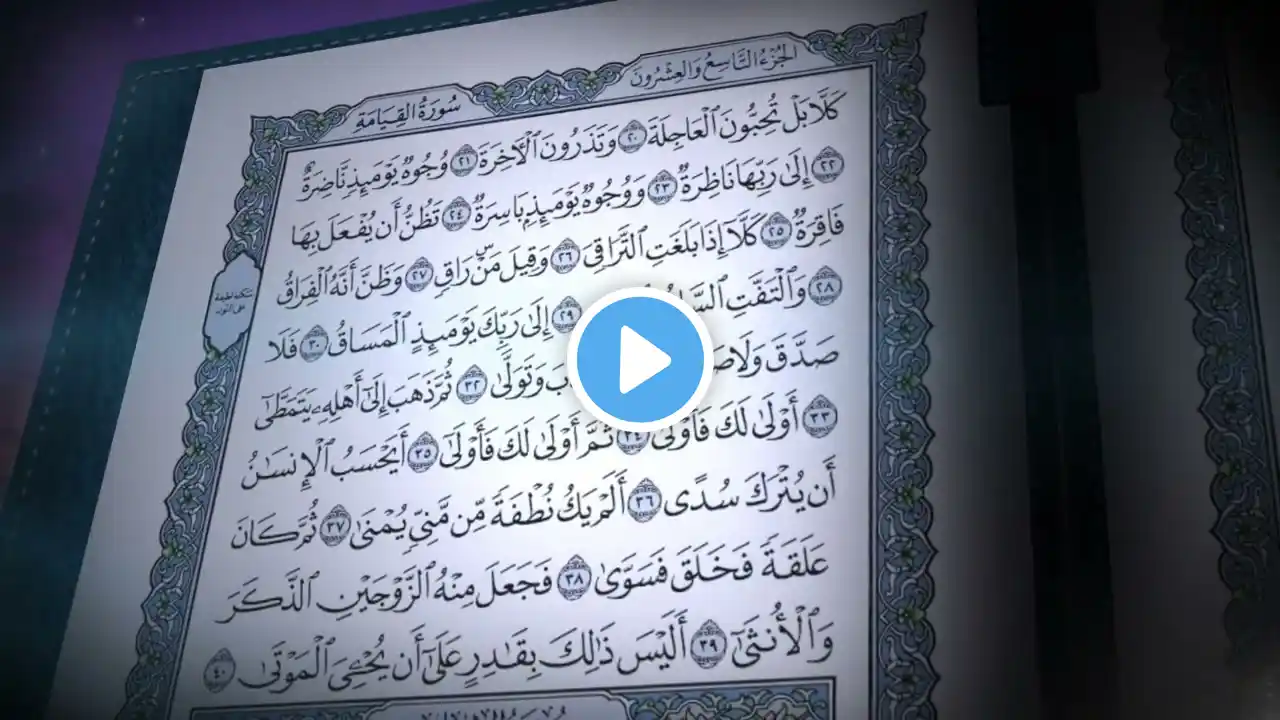 الجُزْءُ التَّاسِعُ وَالعِشْرُونَ
سُورَةُ القِيَامَةِ
كَلَّا بَلْ تُحِبُّونَ ٱلْعَاجِلَةَ ٢٠ وَتَذَرُونَ ٱلْأٓخِرَةَ ٢١ وُجُوهٌ يَوْمَئِذٍ نَّاضِرَةٌ
٢٢ إِلَىٰ رَبِّهَا نَاظِرَةٌ ٢٣ وَوُجُوهٌ يَوْمَئِذٍۭ بَاسِرَةٌ ٢٤ تَظُنُّ أَن يُفْعَلَ بِهَا
فَاقِرَةٌ ٢٥ كَلَّآ إِذَا بَلَغَتِ ٱلتَّرَاقِىَ ٢٦ وَقِيلَ مَنْۜ رَاقٍ ٢٧ وَظَنَّ أَنَّهُ ٱلْفِرَاقُ
٢٨ وَٱلْتَفَّتِ ٱلسَّاقُ ٢٩ إِلَىٰ رَبِّكَ يَوْمَئِذٍ ٱلْمَسَاقُ ٣٠ فَلَا
صَدَّقَ وَلَا وَتَوَلَّىٰ ٣٢ ثُمَّ ذَهَبَ إِلَىٰٓ أَهْلِهِۦ يَتَمَطَّىٰٓ
٣٣ أَوْلَىٰ لَكَ فَأَوْلَىٰ ٣٤ ثُمَّ أَوْلَىٰ لَكَ فَأَوْلَىٰٓ ٣٥ أَيَحْسَبُ ٱلْإِنسَٰنُ
أَن يُتْرَكَ سُدًى ٣٦ أَلَمْ يَكُ نُطْفَةً مِّن مَّنِىٍّ يُمْنَىٰ ٣٧ ثُمَّ كَانَ
عَلَقَةً فَخَلَقَ فَسَوَّىٰ ٣٨ فَجَعَلَ مِنْهُ ٱلزَّوْجَيْنِ ٱلذَّكَرَ
وَٱلْأُنثَىٰٓ ٣٩ أَلَيْسَ ذَٰلِكَ بِقَٰدِرٍ عَلَىٰٓ أَن يُحْۦِىَ ٱلْمَوْتَىٰ ٤٠